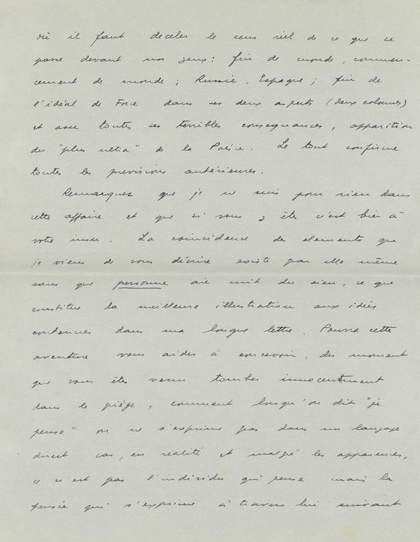 où il faut déceler le sens réel de ce que ce
passe devant nos yeux: fin de monde, commen-
cement de monde; Russie, Espagne; fin de
l'idéal de Force dans ses deux aspects (deux colonnes)
et avec toutes ses terribles conséquences, apparition
du "plus ultra" de la Poésie. Le tout confirme
toutes les prévisions antérieures.
Remarquez que je ne suis pour rien dans
cette affaire et que si vous y êtes c'est bien à
votre insu. La coïncidence des éléments que
je viens de vous décrire existe par elle même
sans que personne ait mis du sien, ce que
constitue la meilleure illustration aux idées
contenues dans ma longue lettre. Pourra cette
aventure vous aider à concevoir, du moment
que vous êtes venu tomber innocentment
dans le piège, comment lorsqu'on dit "je
pense" on ne s'exprime pas dans un langage
direct car, en réalité et malgré les apparences,
ce n'est pas l'individu qui pense mais la
pensée qui s'exprime à travers lui suivant